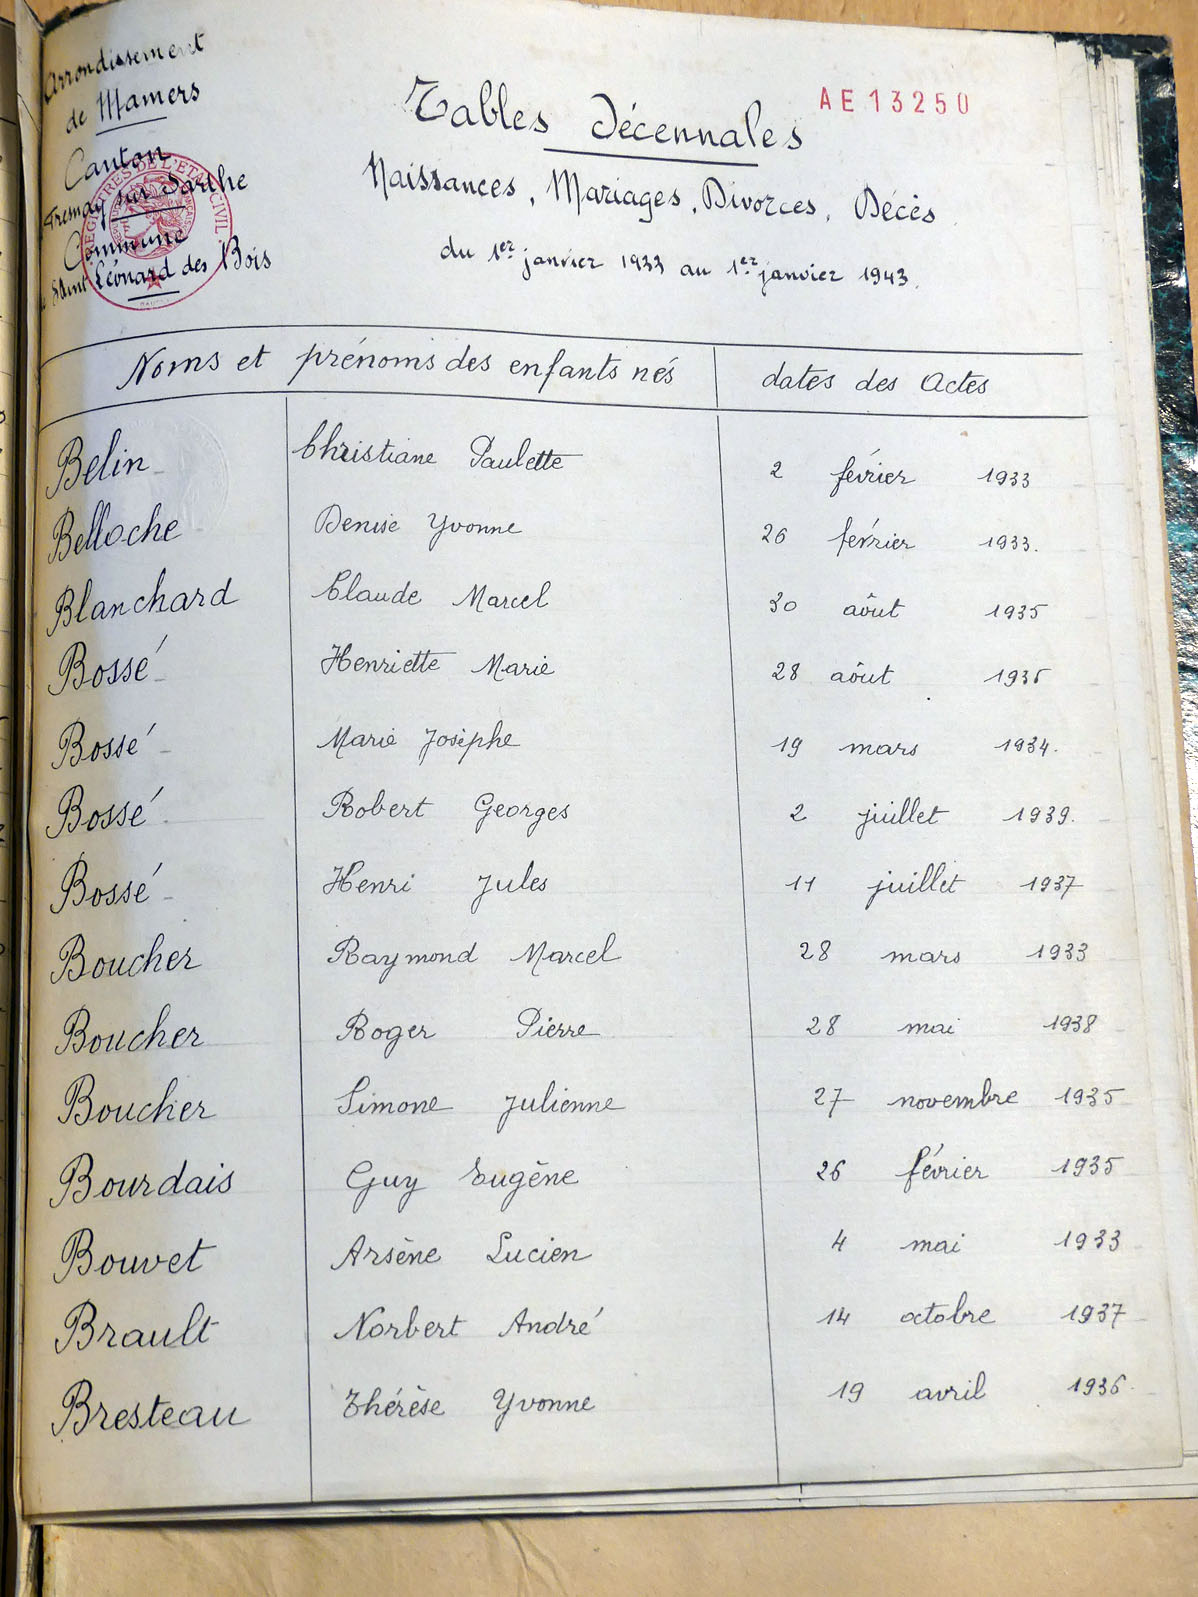 Arrondissement
de Mamers
Canton
Fresnay sur Sarthe
Commune
Saint Léonard des Bois
REGISTRES DE L'ETAT CIVIL
Tables Décennales
AE 13250
Naissances, Mariages, Divorces, Décès
du 1er janvier 1933 au 1er janvier 1943.
Noms et prénoms des enfants nés dates des Actes
Belin Christiane Paulette 2 février 1933
Belloche Denise Yvonne 26 février 1933.
Blanchard Claude Marcel 30 aôut 1935
Bossé Henriette Marie 28 aôut 1935
Bossé Marie Josèphe 19 mars 1934.
Bossé Robert Georges 2 juillet 1939.
Bossé Henri Jules 11 juillet 1937
Boucher Raymond Marcel 28 mars 1933
Boucher Roger Pierre 28 mai 1938
Boucher Simone Julienne 27 novembre 1935
Bourdais Guy Eugène 26 février 1935
Bouvet Arsène Lucien 4 mai 1933
Brault Norbert André 14 octobre 1937
Bresteau Thérèse Yvonne 19 avril 1936